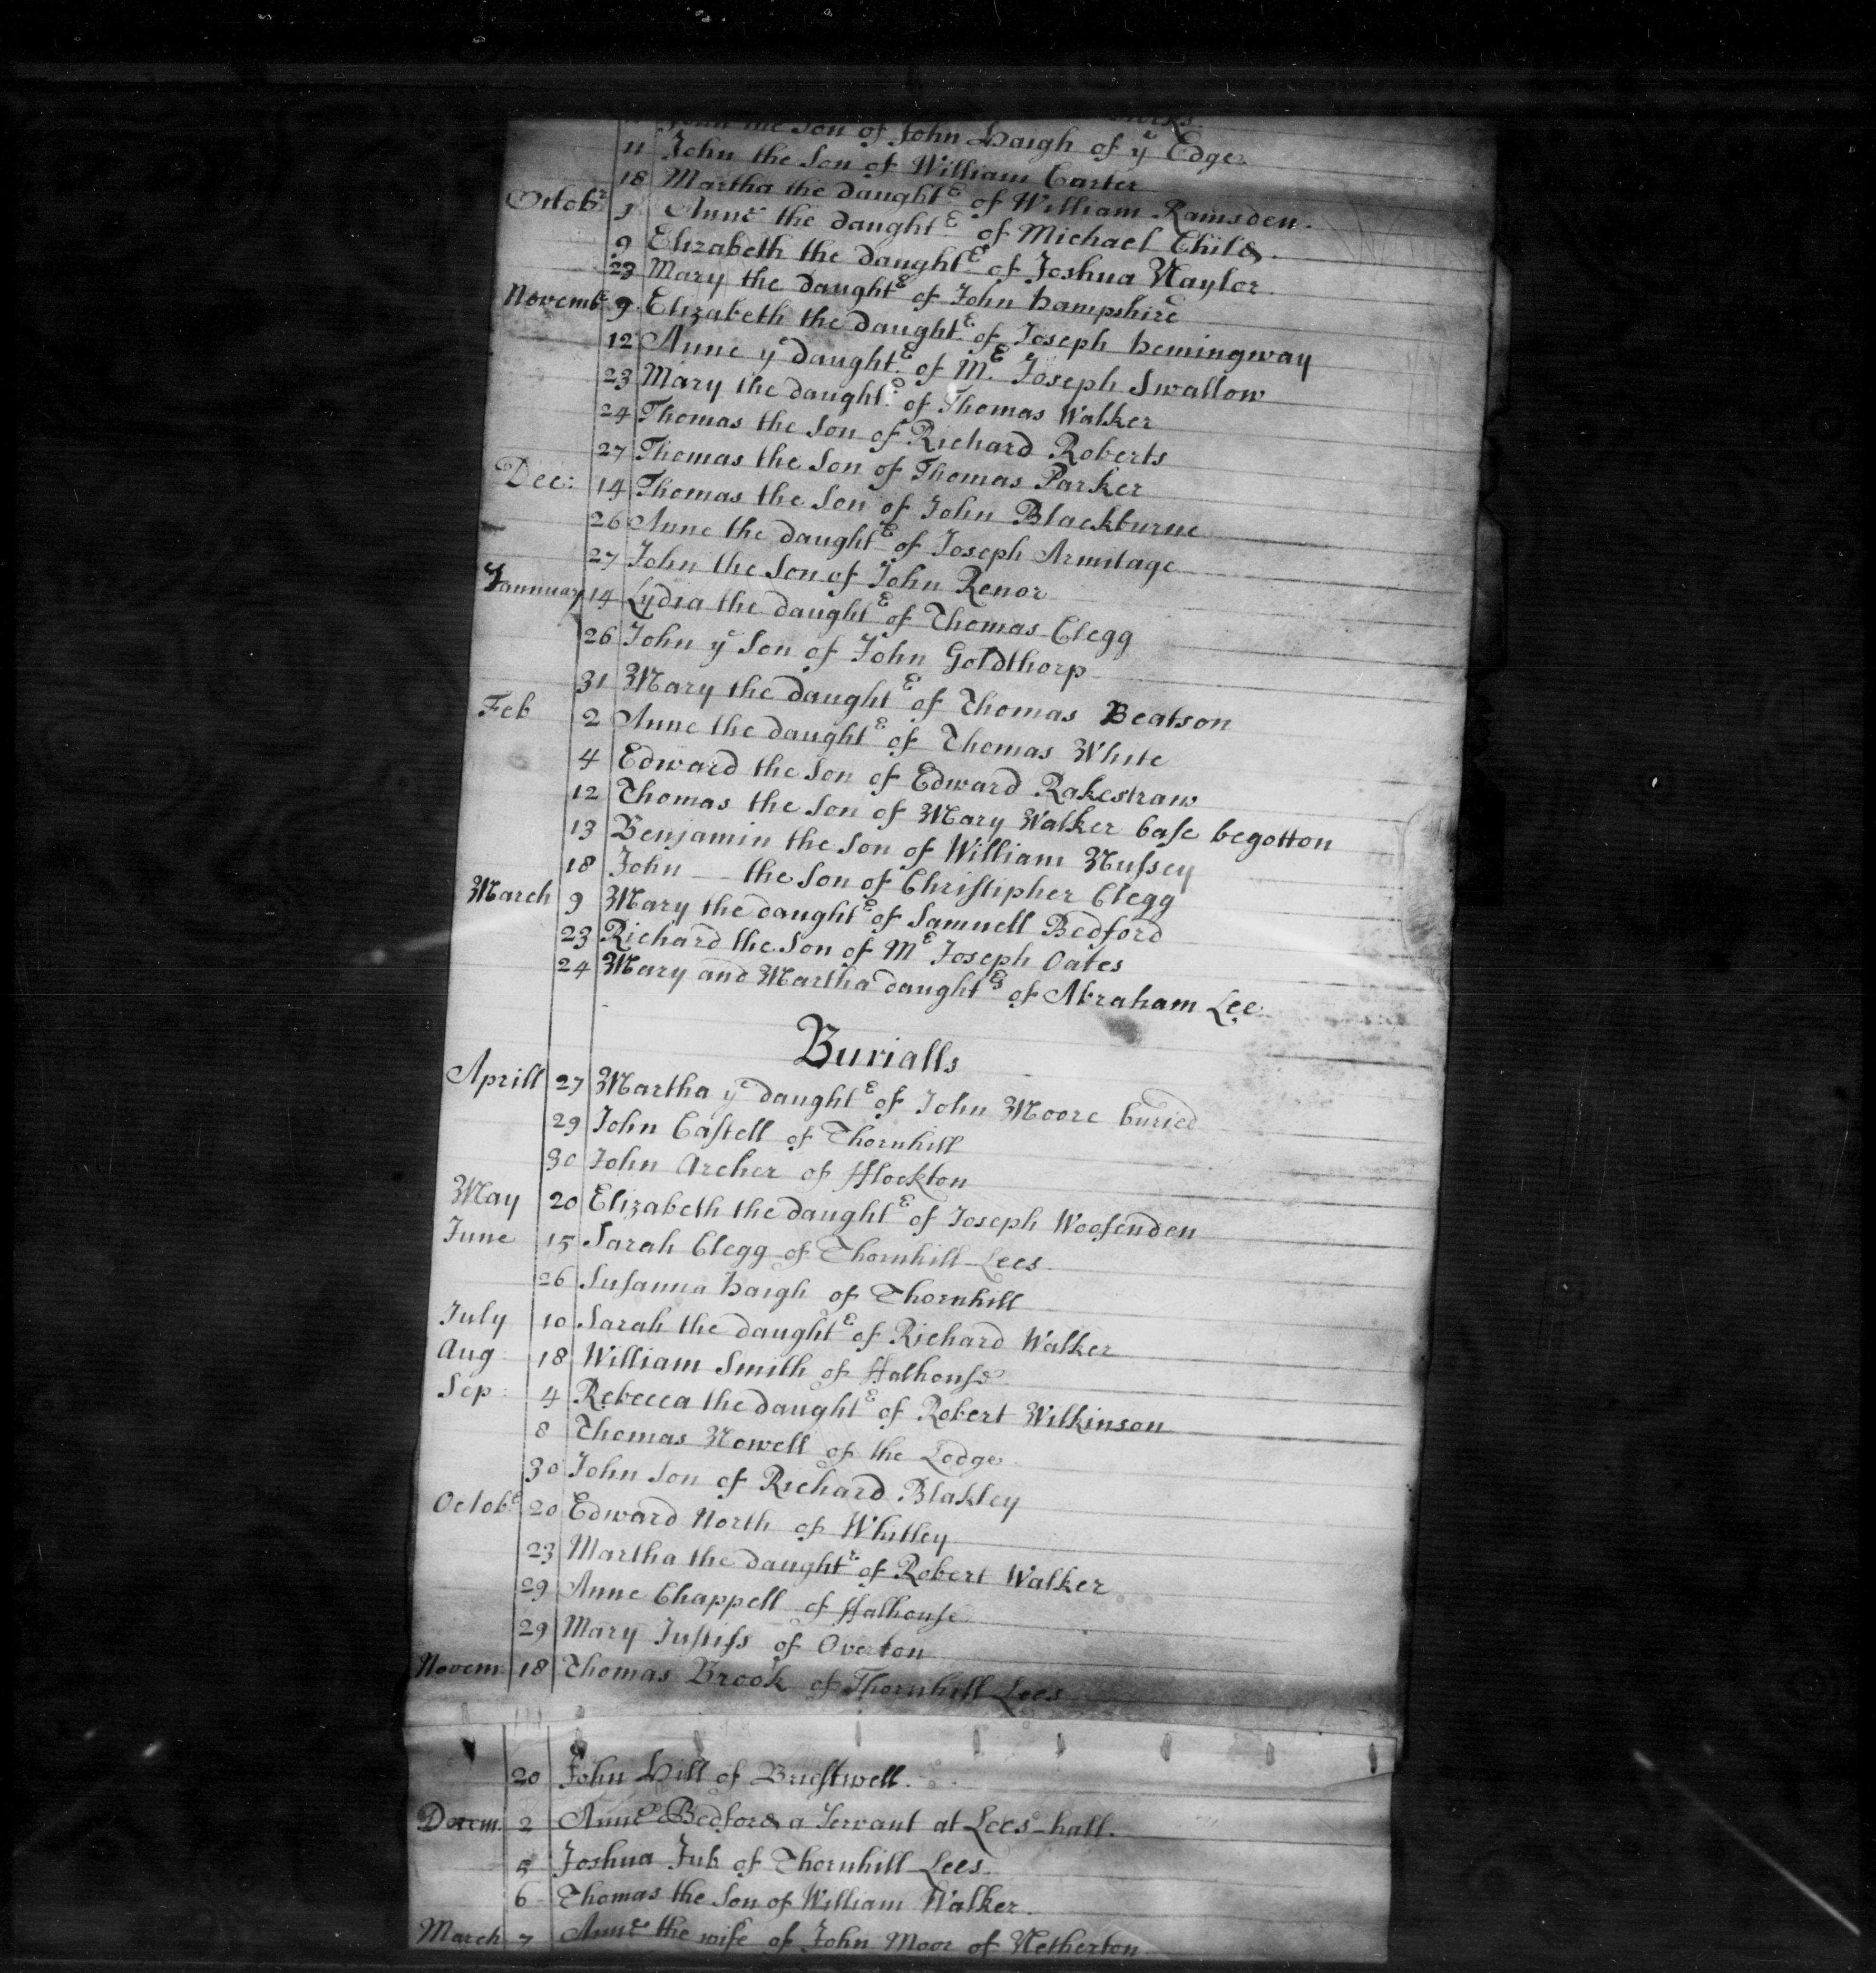 the Son of John Haigh of yᵉ Edge
11 John the Son of William Carter
18 Martha the daughtᵉʳ of William Ramsden.
Octobʳ 1 Anne the daughtʳ of Michael Child.
9 Elizabeth the daughtʳ of Joshua Naylor.
23 Mary the daughtʳ of John Hampshire
Novembʳ 9 Elizabeth the daughtʳ of Joseph Hemingway
12 Anne yᵉ daughtʳ of Mʳ Joseph Swallow
23 Mary the daughtʳ of Thomas Walker
24 Thomas the Son of Richard Roberts
27 Thomas the Son of Thomas Parker
Dec: 14 Thomas the Son of John Blackburne
26 Anne the daughtʳ of Joseph Armitage
27 John the Son of John Renor
Jannuary 14 Lydia the daughtʳ of Thomas Clegg
26 John yᵉ Son of John Goldthorp
31 Mary the daughtʳ of Thomas Beatson
Feb 2 Anne the daughtʳ of Thomas White
4 Edward the Son of Edward Rakestraw
12 Thomas the Son of Mary Walker base begotton
13 Benjamin the Son of William Nussey
18 John — the Son of Christipher Clegg
March 9 Mary the daughtʳ of Samuell Bedford
23 Richard the Son of Mʳ Joseph Oates
24 Mary and Martha daughtʳˢ of Abraham Lee
Burialls
Aprill 27 Martha yᵉ daughtʳ of John Moore buried
29 John Castell of Thornhill
30 John Archer of fflockton
May 20 Elizabeth the daughtʳ of Joseph Woosenden
June 15 Sarah Clegg of Thornhill-Lees
26 Susanna Haigh of Thornhill
July 10 Sarah the daughtʳ of Richard Walker
Aug 18 William Smith of ffalhouse
Sep: 4 Rebecca the daughtʳ of Robert Wilkinson
8 Thomas Nowell of the Lodge
30 John Son of Richard Blakley
Octobʳ 20 Edward North of Whitley
23 Martha the daughtʳ of Robert Walker
29 Anne Chappell of ffalhouse
29 Mary Justiss of Overton
Novem: 18 Thomas Brook of Thornhill Lees
20 John Hill of Briestwell.
Decem. 2 Anne Bedford a Servant at Lees-hall.
5 Joshua Jub of Thornhill-Lees.
6 Thomas the Son of William Walker.
March 7 Anne the wife of John Moor of Netherton